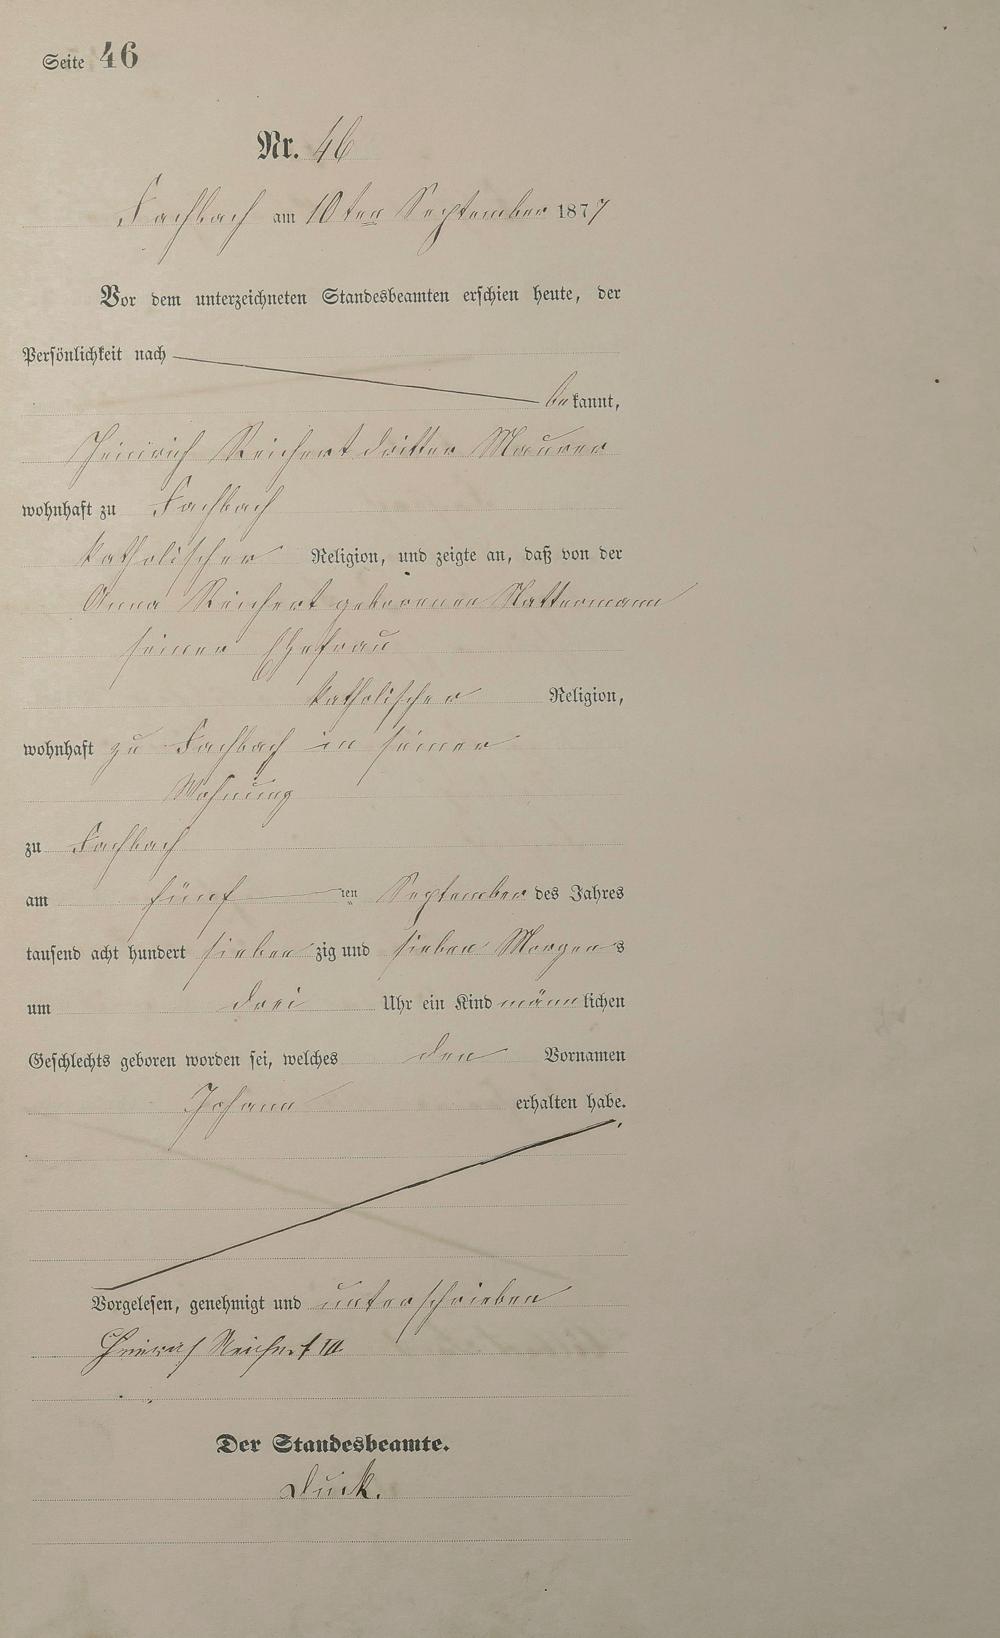 Seite 46
Nr. 46
Fachbach am 10ten September 1877
Vor dem unterzeichneten Standesbeamten erschien heute, der
Persönlichkeit nach
bekannt,
Heinrich Reichert dritter Maurer
wohnhaft zu Fachbach
katholischer Religion, und zeigte an, daß von der
Anna Reichert geborenen Nattermann
seiner Ehefrau
katholischer Religion,
wohnhaft zu Fachbach in seiner
Wohnung
zu Fachbach
am fünf ten September des Jahres
tausend acht hundert siebenzig und sieben Morgens
um drei Uhr ein Kind männlichen
Geschlechts geboren worden sei, welches den Vornamen
Johann erhalten habe.
Vorgelesen, genehmigt und unterschrieben
Heinrich Reichert III
Der Standesbeamte.
Duck.